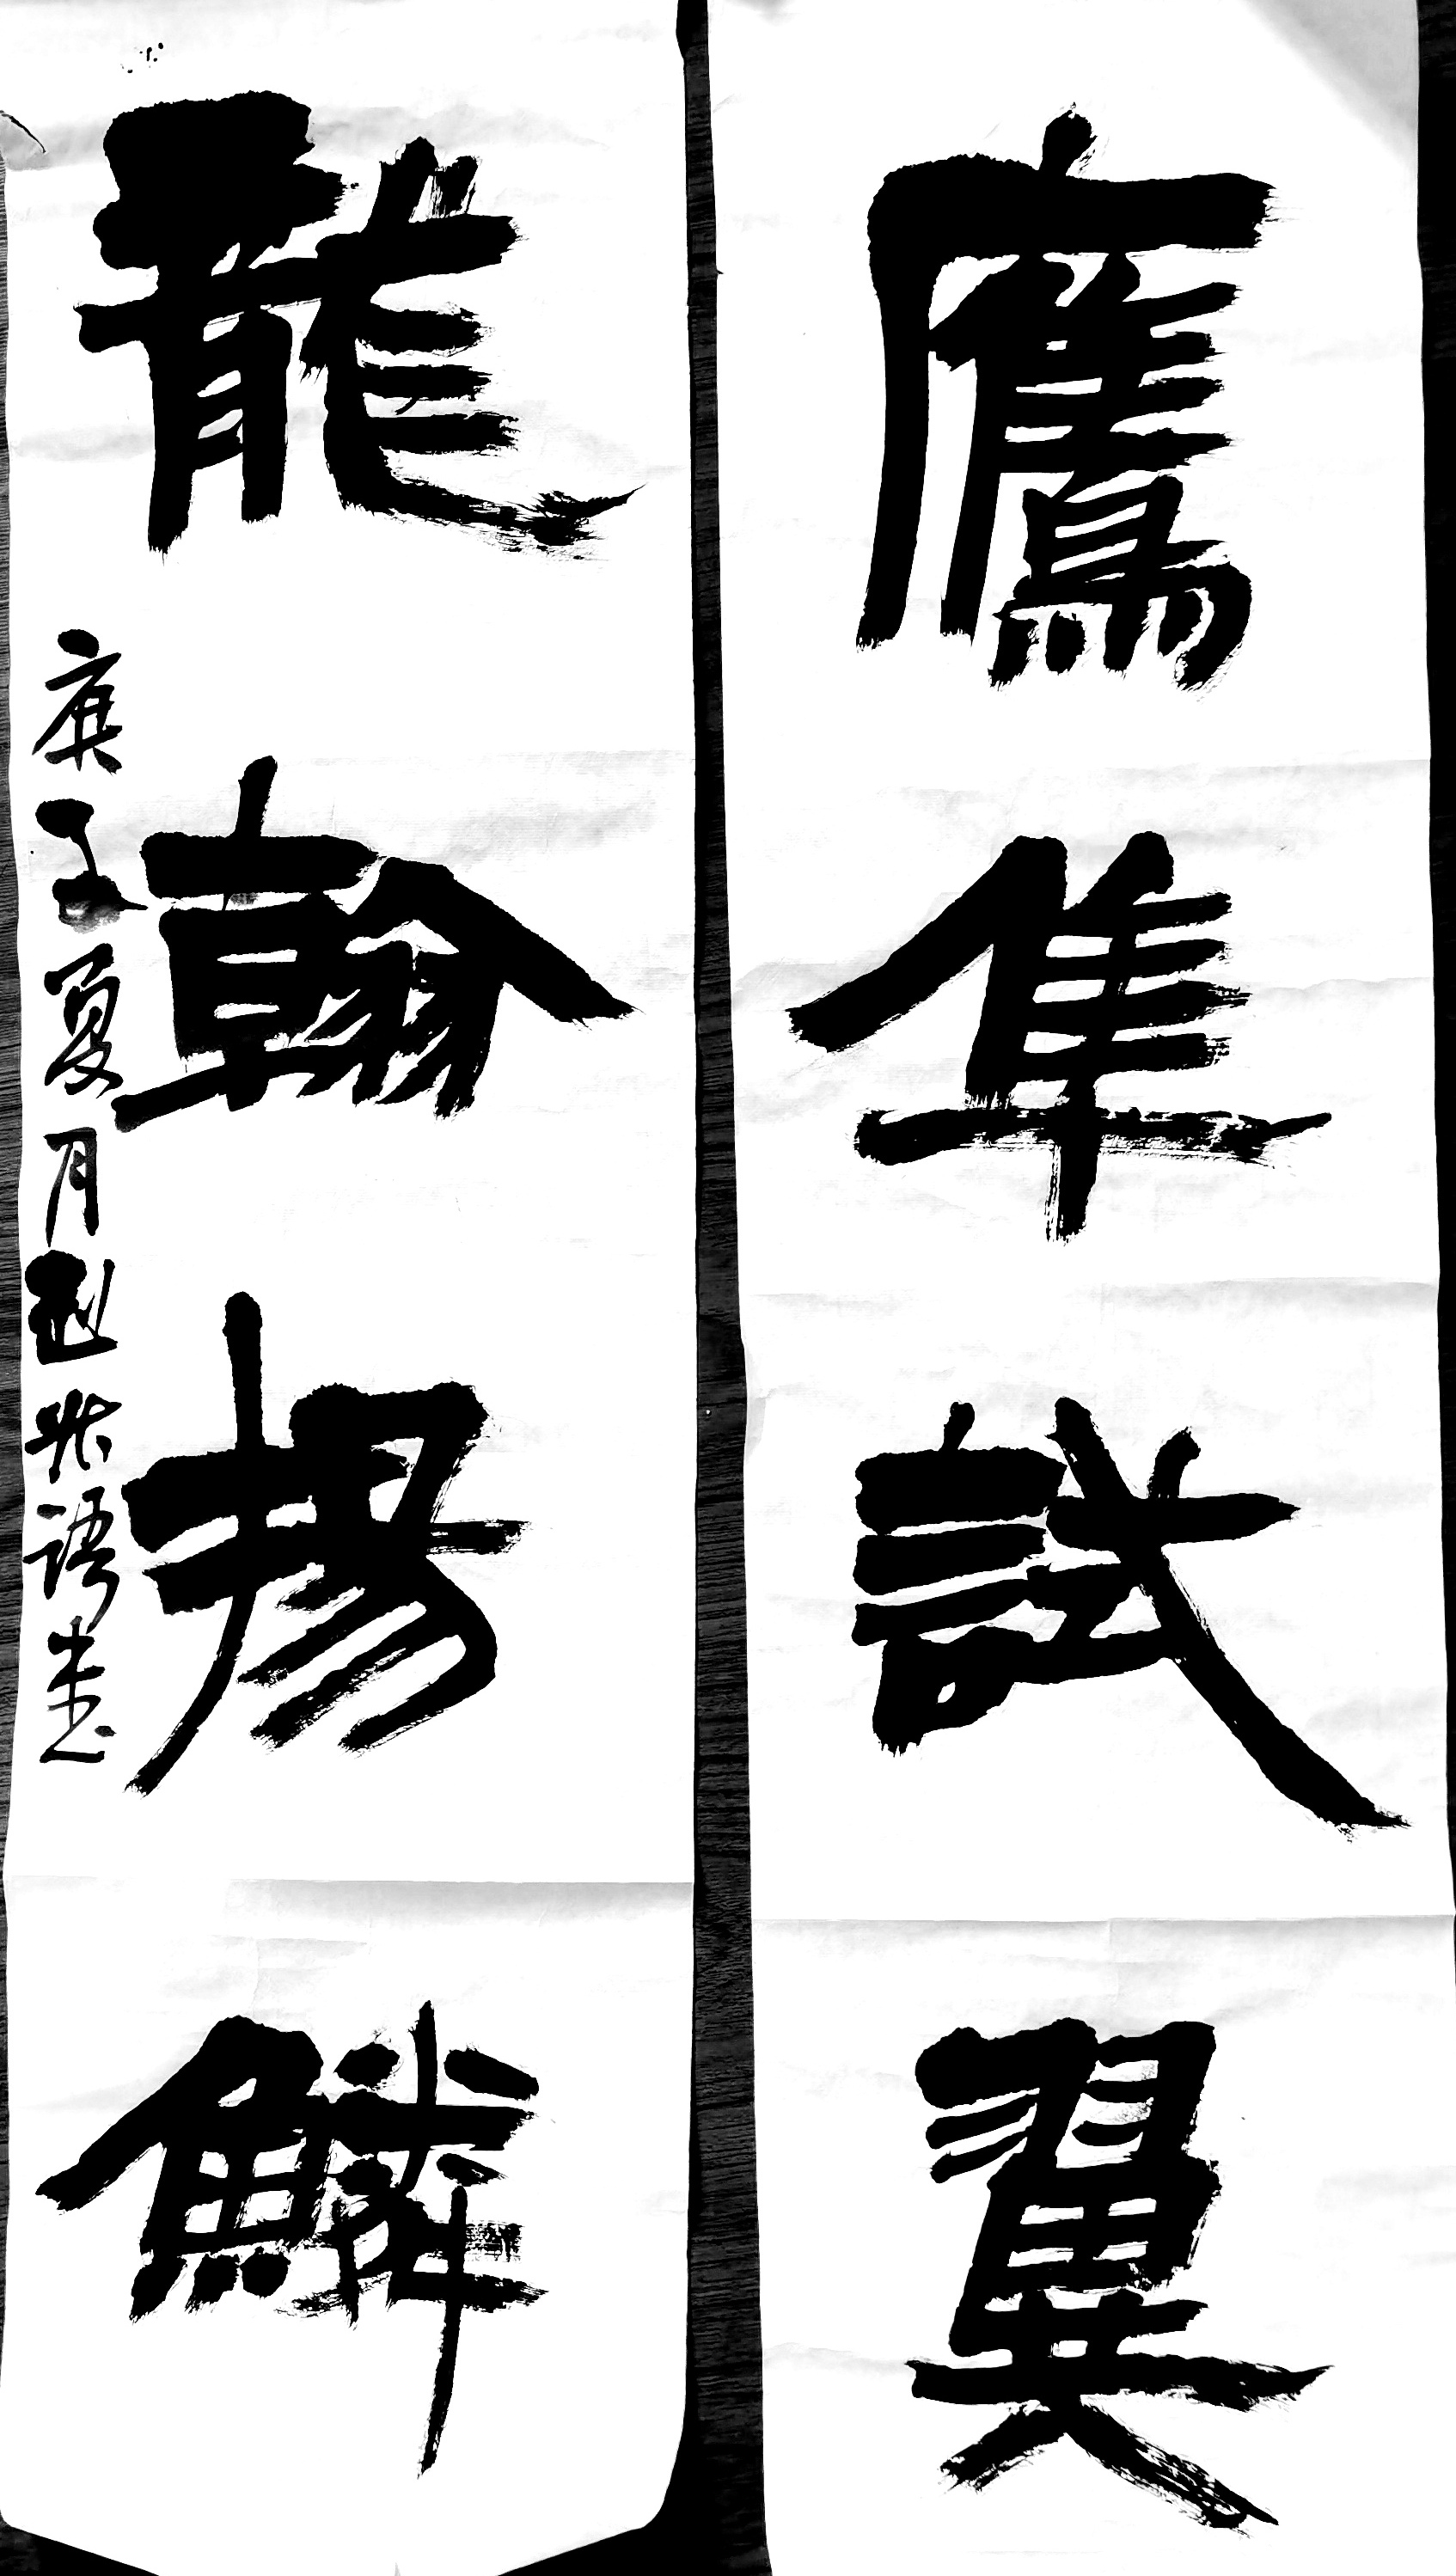 鷹隼試翼
龍翰揚鱗
庚子夏月语書